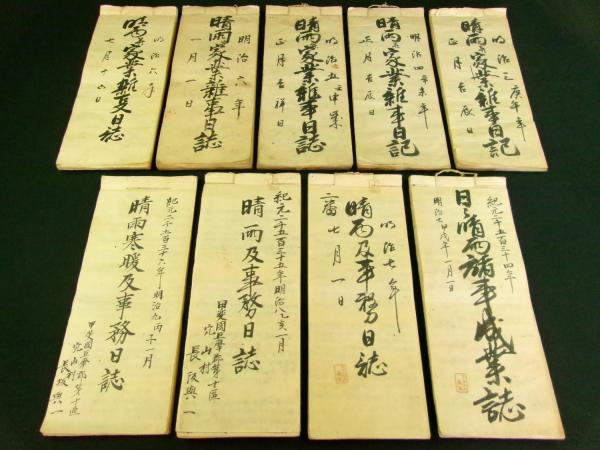 明治三庚午年
晴雨家業雑事日記
正月吉辰日
明治四辛未年
晴雨家業雑事日記
正月吉辰日
明治五壬申業
晴雨家業雑事日誌
正月吉祥日
明治六年
晴雨家業雑事日誌
一月一日
明治六年
晴雨家業雑事日誌
七月十六日
紀元二千五百三十四年
日々晴雨諸事成業誌
明治七甲戌年一月一日
明治七年
晴雨及事務日誌
二番 七月一日
紀元二千五百三十五年明治八乙亥一月
晴雨及事務日誌
甲斐國巨摩郡第十區
穴山村
長坂與一
紀元二千五百三十六年明治九丙子一月
晴雨寒暖及事務日誌
甲斐國巨摩郡第十區
穴山村
長坂與一